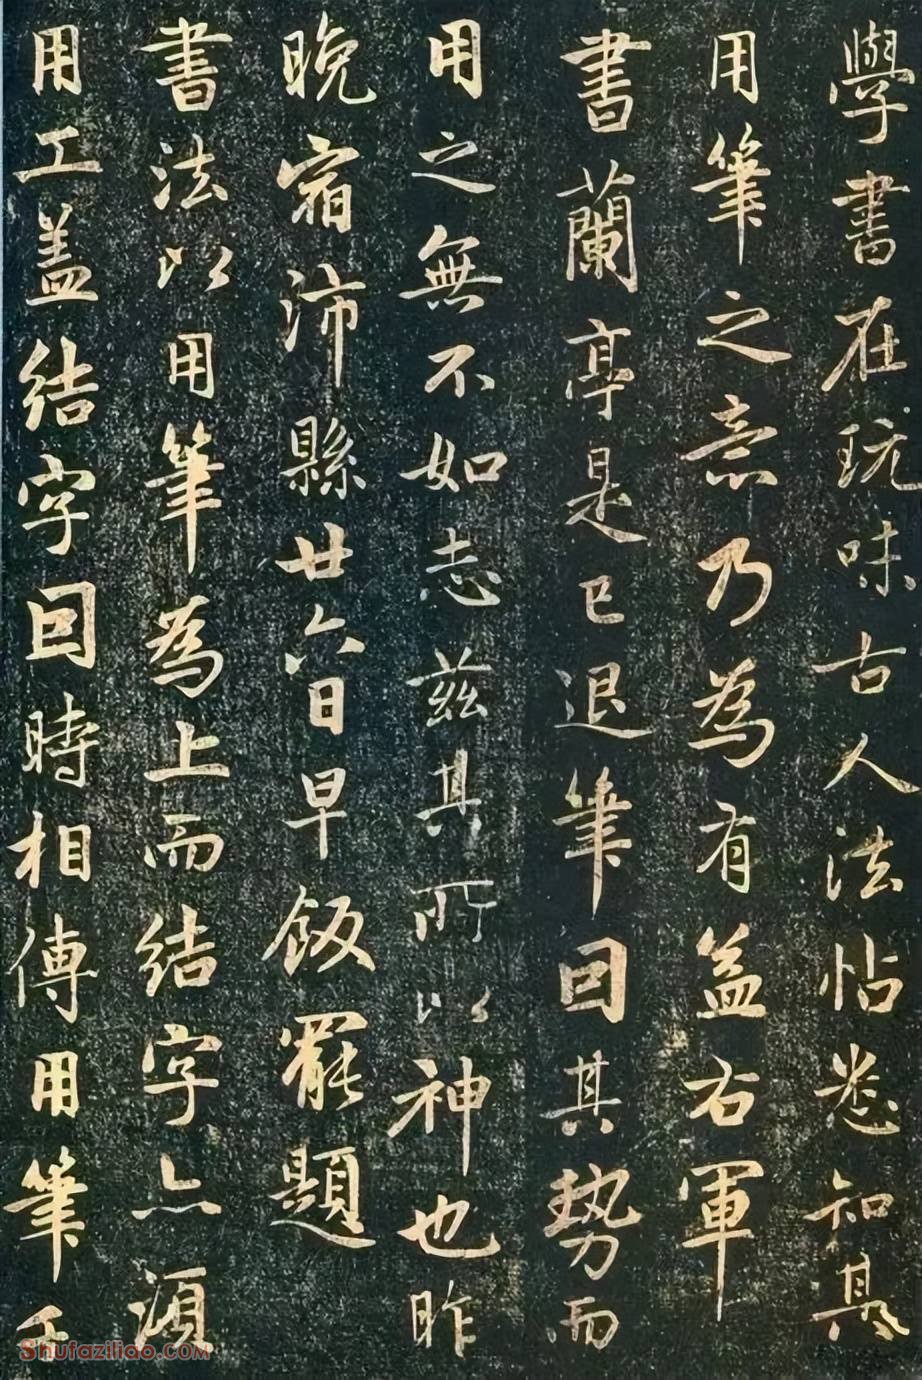 學書在玩味古人法帖悉知其
用筆之意乃為有益右軍
書蘭亭是已退筆因其勢而
用之無不如志茲其所以神也昨
晚宿沛縣廿六日早飯罷題
書法以用筆為上而結字亦須
用工盖結字因時相傳用筆千
Shufaziliao.COM